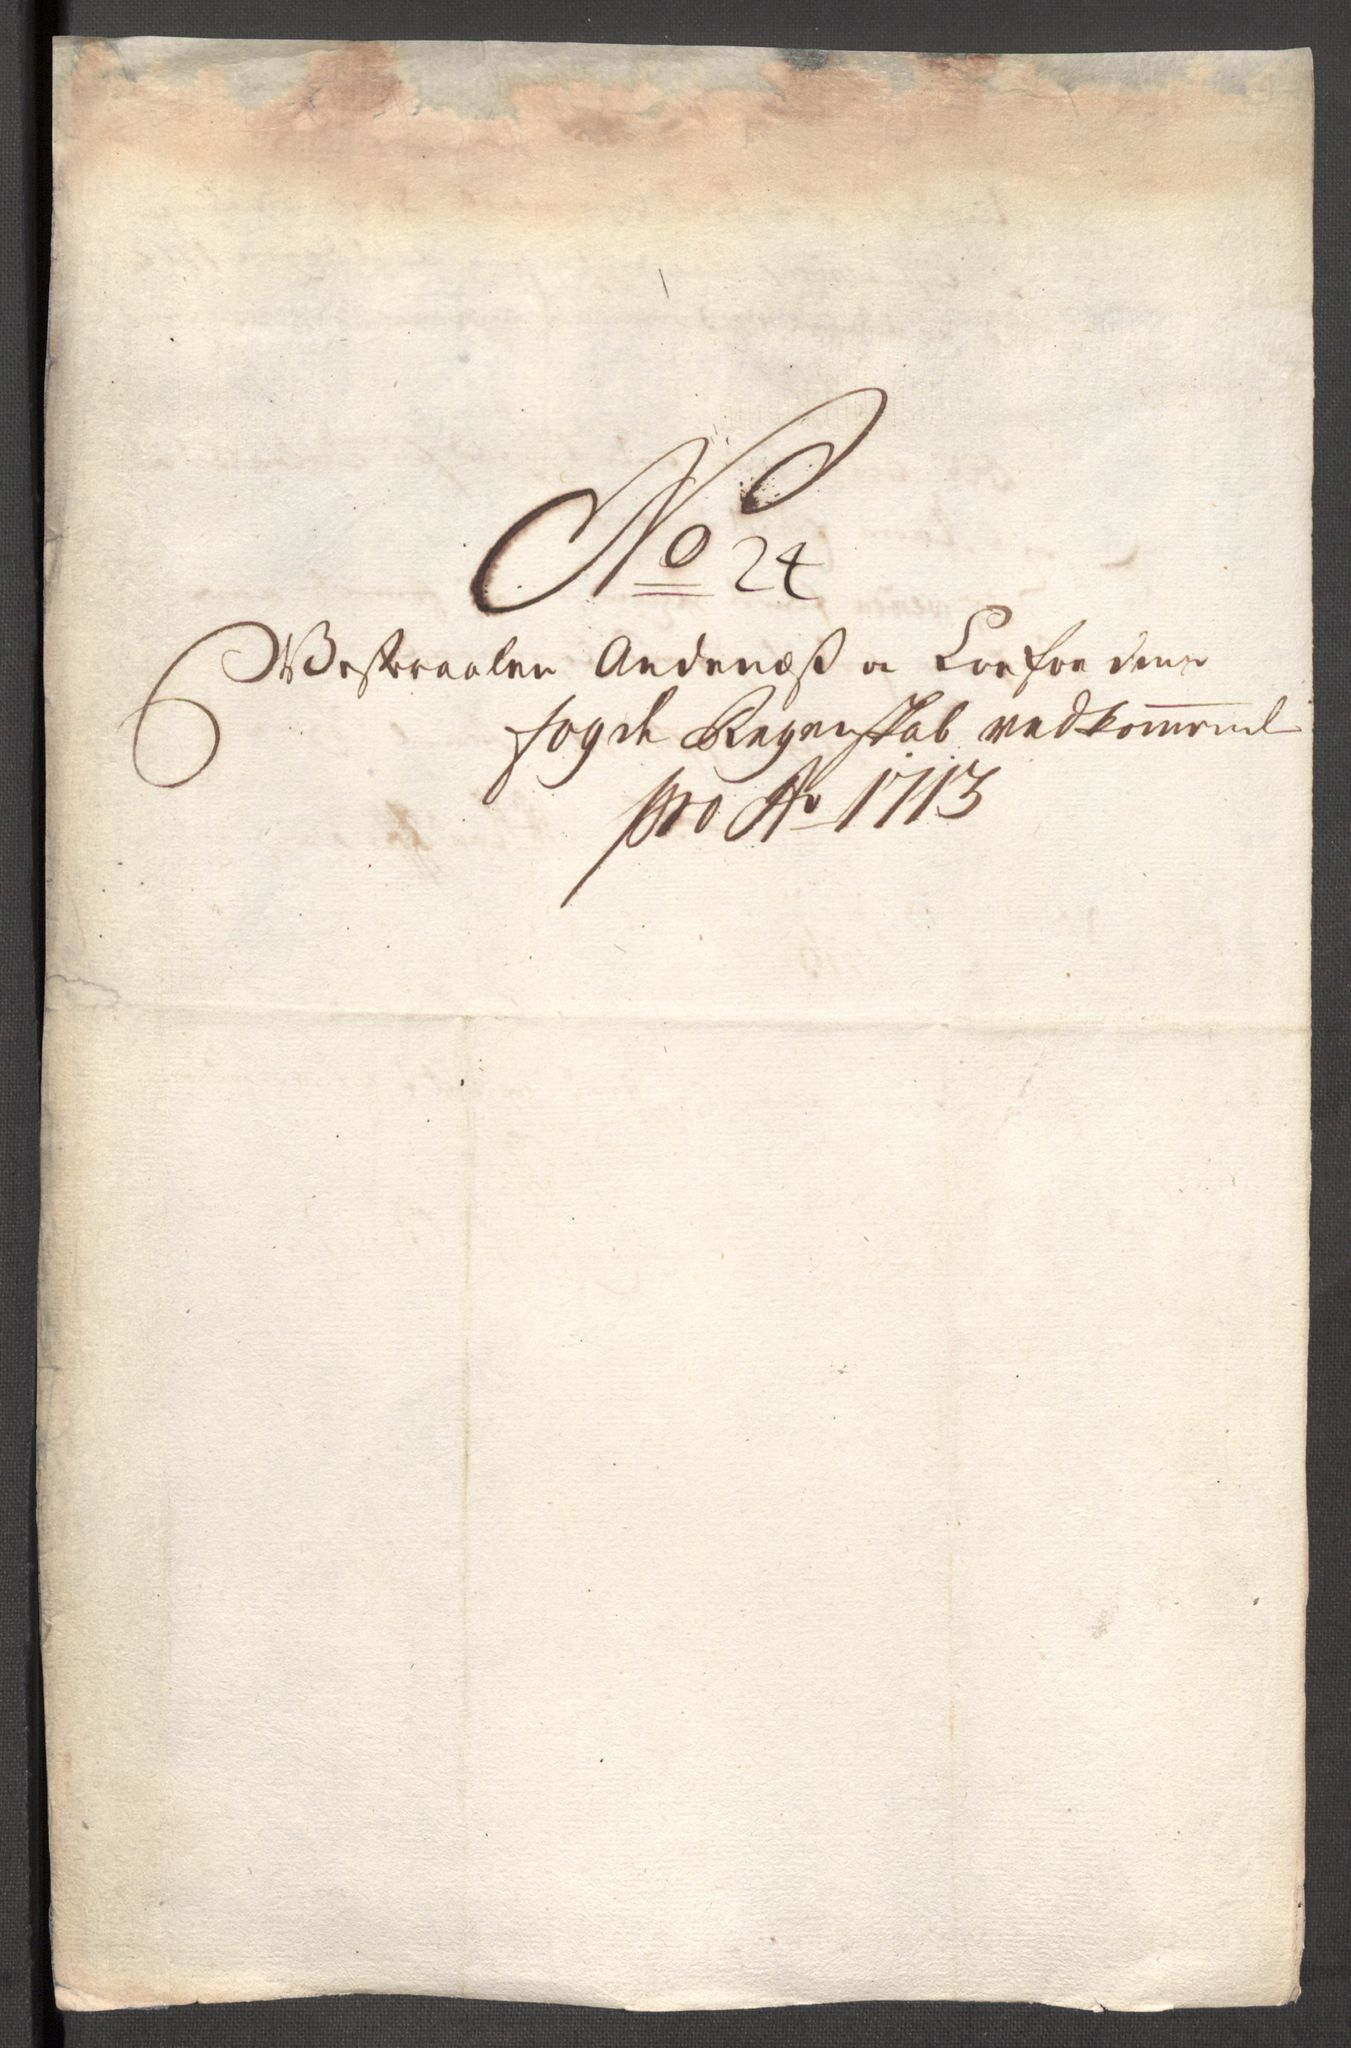 No 24
Westeraalen Andenæß oc Loefoedens
fogde Regenskab vedkommend
pro Ao 1713